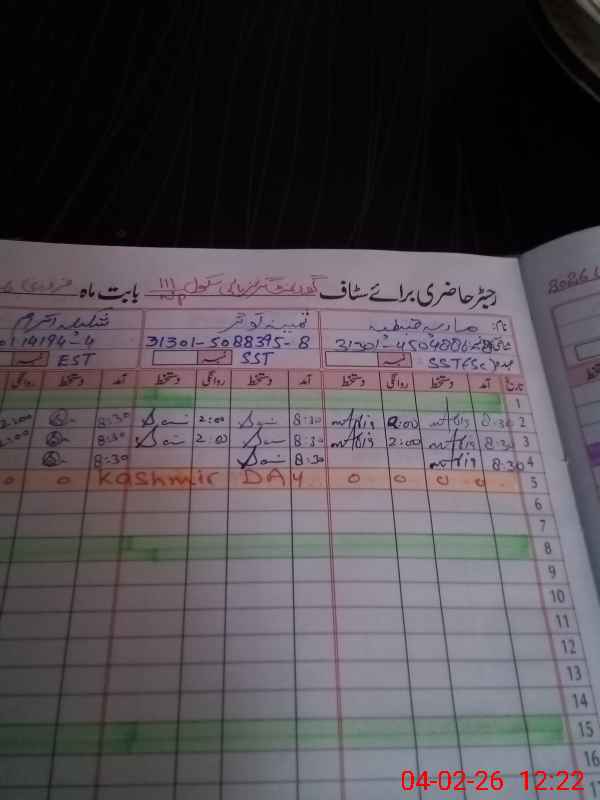 رجسٹر حاضری برائے سٹاف گورنمنٹ گرلز ہائی سکول 111/NP بابت ماہ فروری
نام: ماریہ حفیظ ثمینہ کوثر شکیلہ اکرم
31301-5088395-8 0114194-4
SST(Sc) SST EST
تاریخ آمد دستخط روانگی دستخط آمد دستخط روانگی دستخط آمد دستخط روانگی
1
2 8:30 2:00 8:30 2:00 8:30 2:00
3 8:30 2:00 8:30 2:00 8:30 2:00
4 8:30 8:30 8:30
5 0 0 0 0 Kashmir DAY 0 0
6
7
8
9
10
11
12
13
14
15
16
04-02-26 12:22